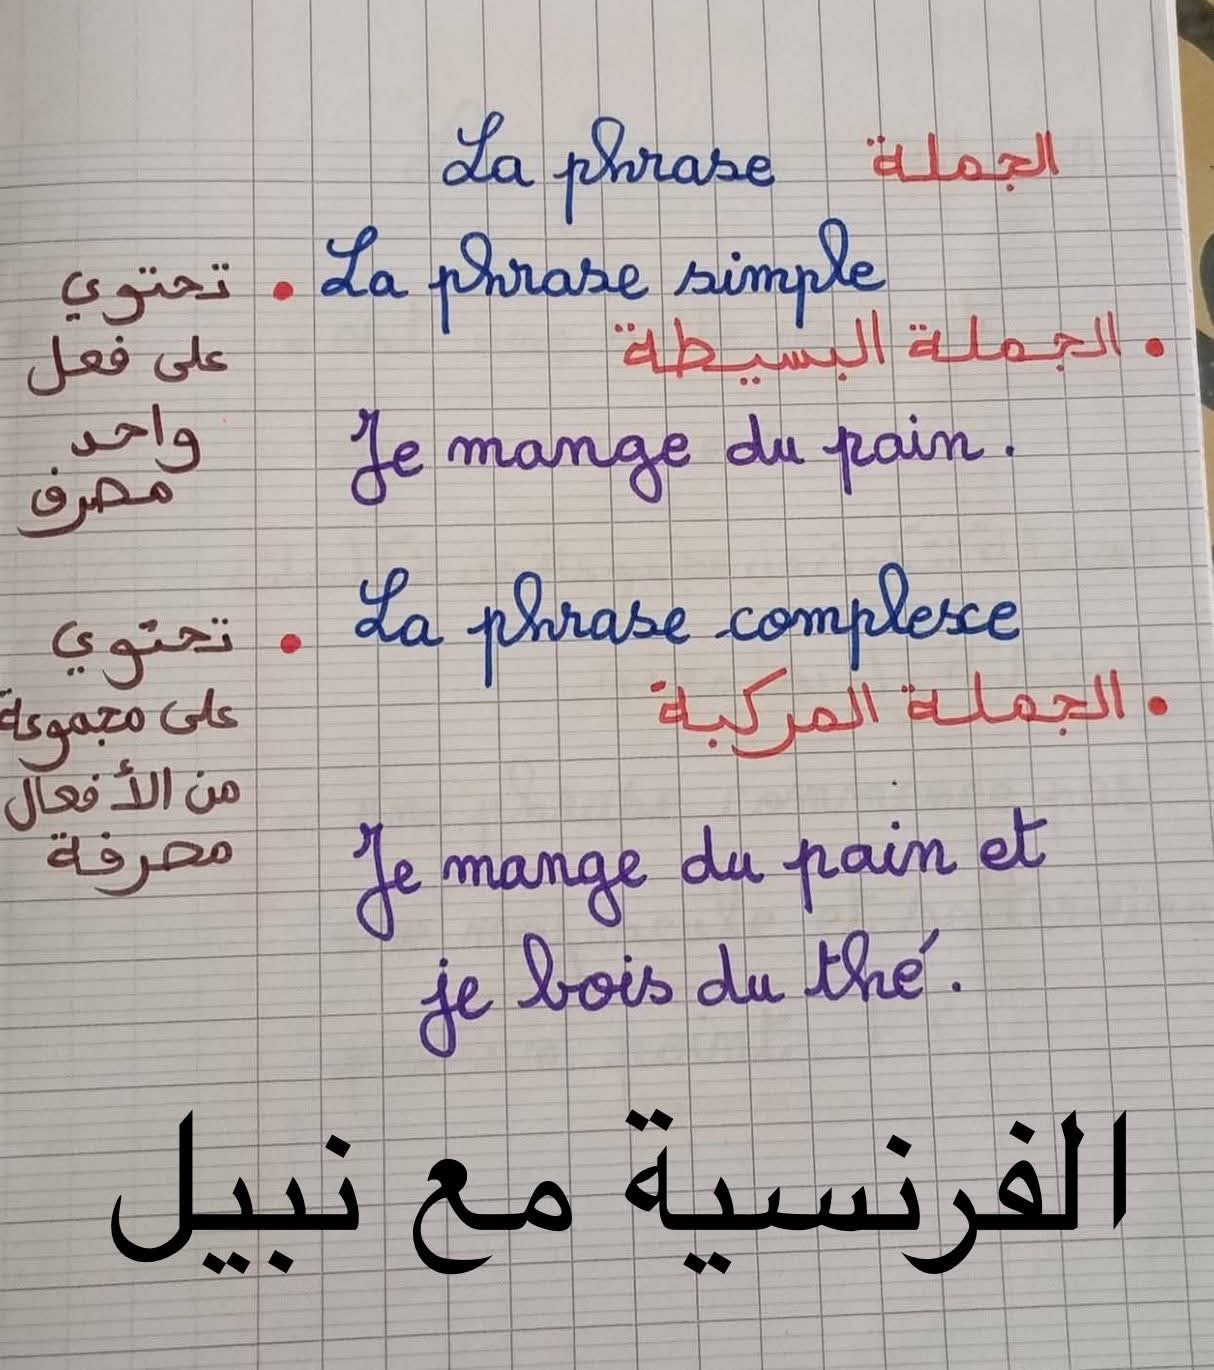 La phrase الجملة
• La phrase simple
• الجملة البسيطة
تحتوي
على فعل
واحد
مصرف
Je mange du pain.
• La phrase complexe
• الجملة المركبة
تحتوي
على مجموعة
من الأفعال
مصرفة
Je mange du pain et
je bois du thé.
الفرنسية مع نبيل